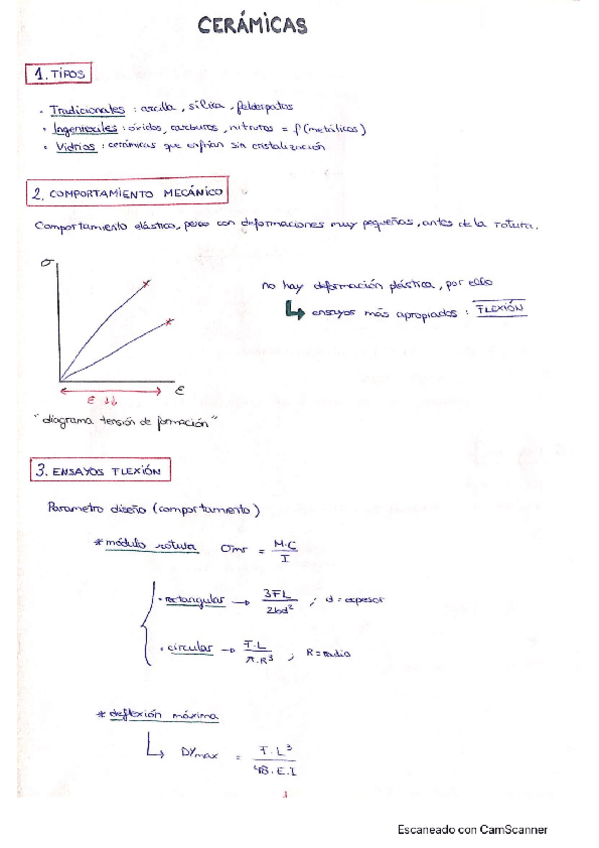 CERÁMICAS
1. TIPOS
• Tradicionales : arcilla, sílica, feldespatos
• Ingenieriles : óxidos, carburos, nitruros = f (metálicos)
• Vidrios : cerámicas que enfrían sin cristalización
2. COMPORTAMIENTO MECÁNICO
Comportamiento elástico, pero con deformaciones muy pequeñas, antes de la rotura.
σ
no hay deformación plástica, por ello
ensayos más apropiados : FLEXIÓN
ε
ε ↓↓
"diagrama tensión deformación"
3. ENSAYOS FLEXIÓN
Parametro diseño (comportamiento)
* módulo rotura σmr = M·C / I
• rectangular → 3FL / 2bd² ; d = espesor
• circular → F·L / π·R³ ; R = radio
* deflexión máxima
DYmax = F·L³ / 48·E·I
1
Escaneado con CamScanner